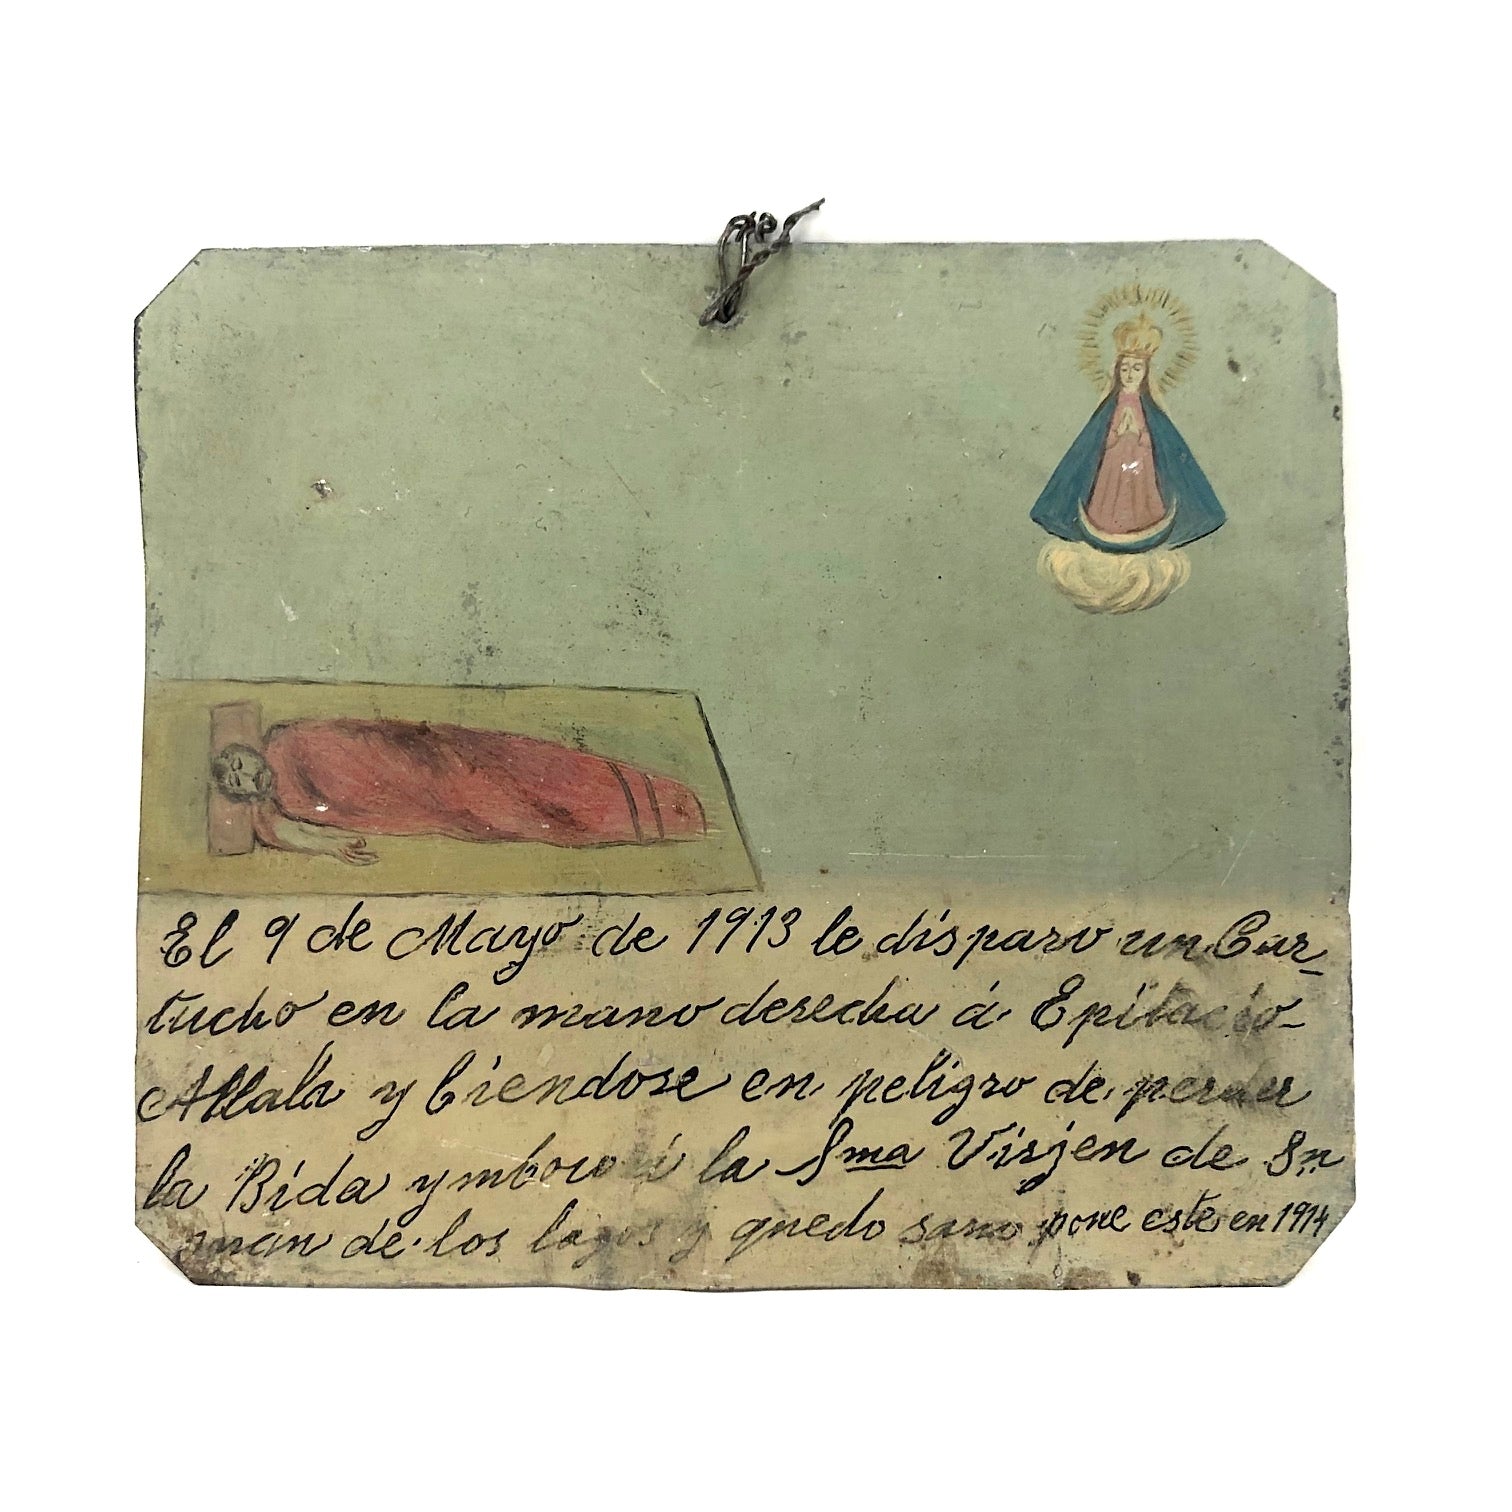 El 9 de Mayo de 1913 le disparo un Car-
tucho en la mano derecha á Epitacio-
y biendose en peligro de perder
la Bida y la Sma Virjen de Sn
Juan de los lagos y quedo sano pone este en 1914